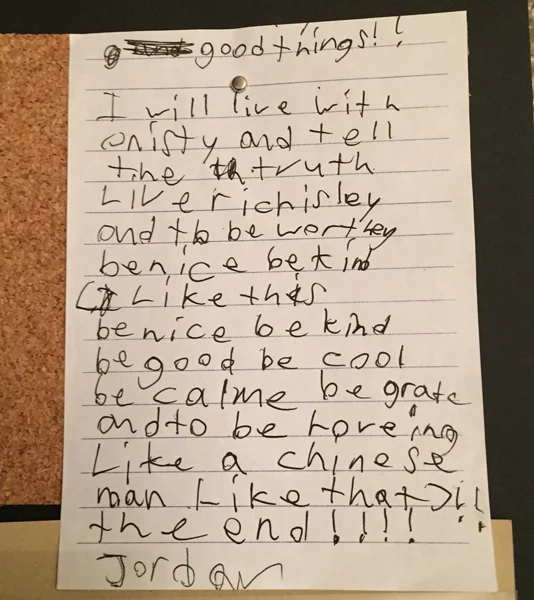 good things!!
I will live with
onisty and tell
the truth
Live richisley
and to be worthey
be nice be kind
( Like this
be nice be kind
be good be cool
be calme be grate
and to be loreing
Like a chinese
man Like that)!!!
the end!!!!
Jordan